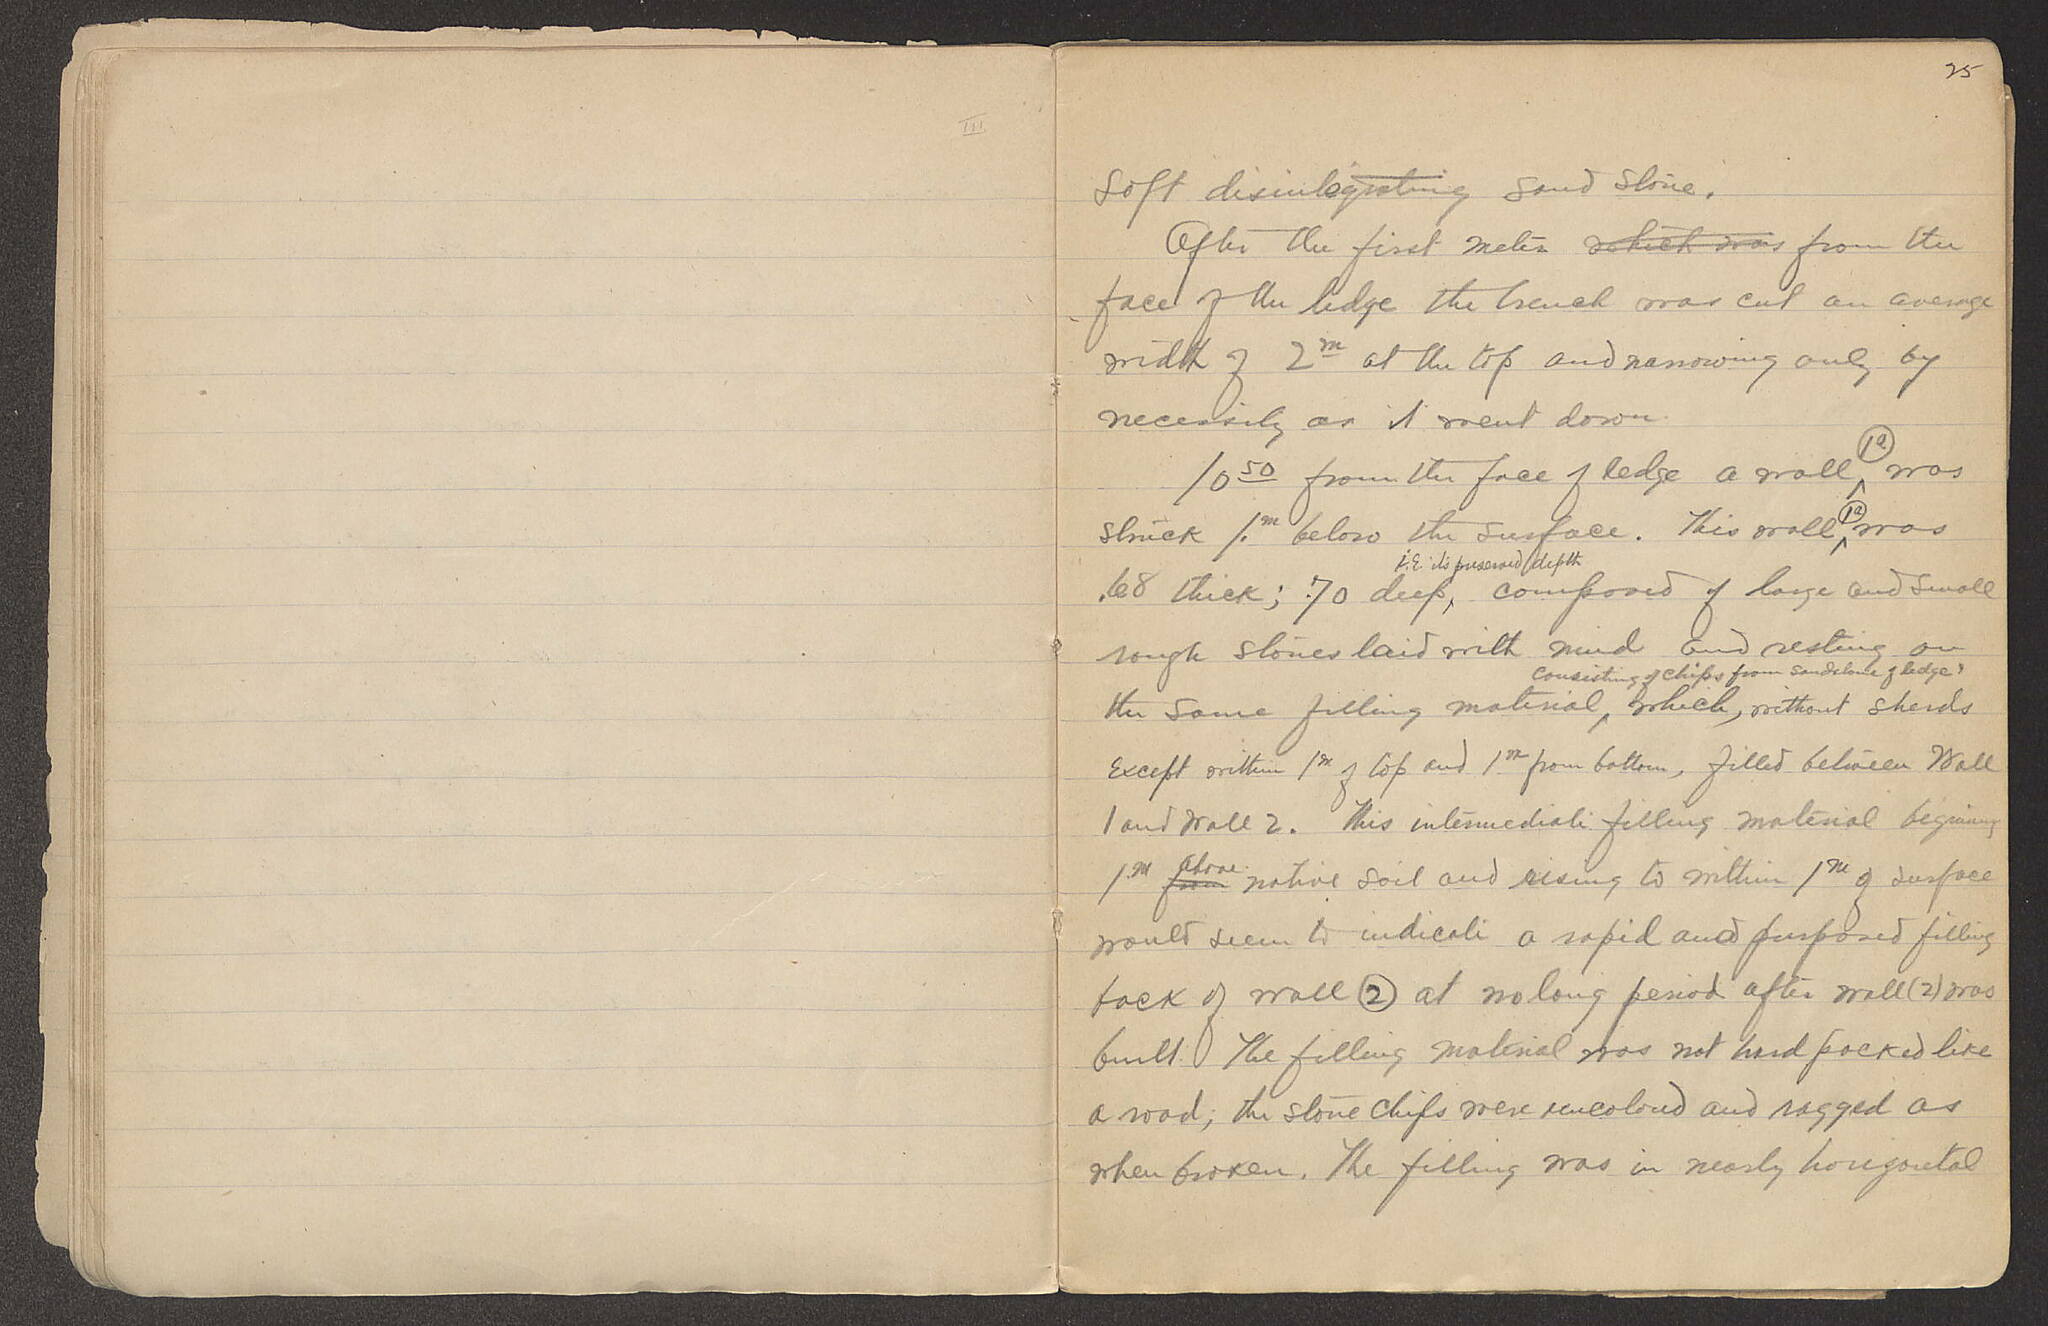 III
25
soft disintegrating sand stone.
After the first meter which was from the
face of the ledge the trench was cut an average
width of 2m at the top and narrowing only by
necessity as it went down.
10 50 from the face of ledge a wall 1a was
struck 1.m below the surface. This wall 1a was
i.E. its preserved depth
.68 thick; .70 deep, composed of large and small
rough stones laid with mud and resting on
consisting of chips from sandstone of ledge,
the same filling material, which, without sherds
Except within 1m of top and 1m from bottom, filled between Wall
1 and Wall 2. This intermediate filling material begining
above
1.m from native soil and rising to within 1m of surface
would seem to indicate a rapid and purposed filling
back of wall (2) at no long period after wall (2) was
built. The filling material was not hard packed like
a road; the stone chips were uncolored and ragged as
when broken. The filling was in nearly horizontal